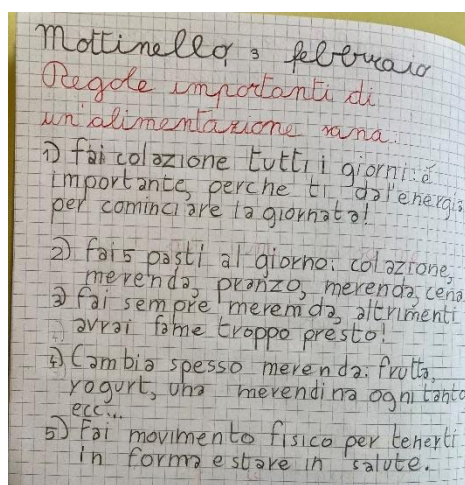 Mottinello, 3 febbraio
Regole importanti di
un'alimentazione sana:
1) fai colazione tutti i giorni: è
importante, perche ti dà l'energia
per cominciare la giornata!
2) fai 5 pasti al giorno: colazione,
merenda, pranzo, merenda, cena
3) fai sempre meremda, altrimenti
avrai fame troppo presto!
4) Cambia spesso merenda: frutta,
yogurt, una merendina ogni tanto
ecc...
5) Fai movimento fisico per tenerti
in forma e stare in salute.